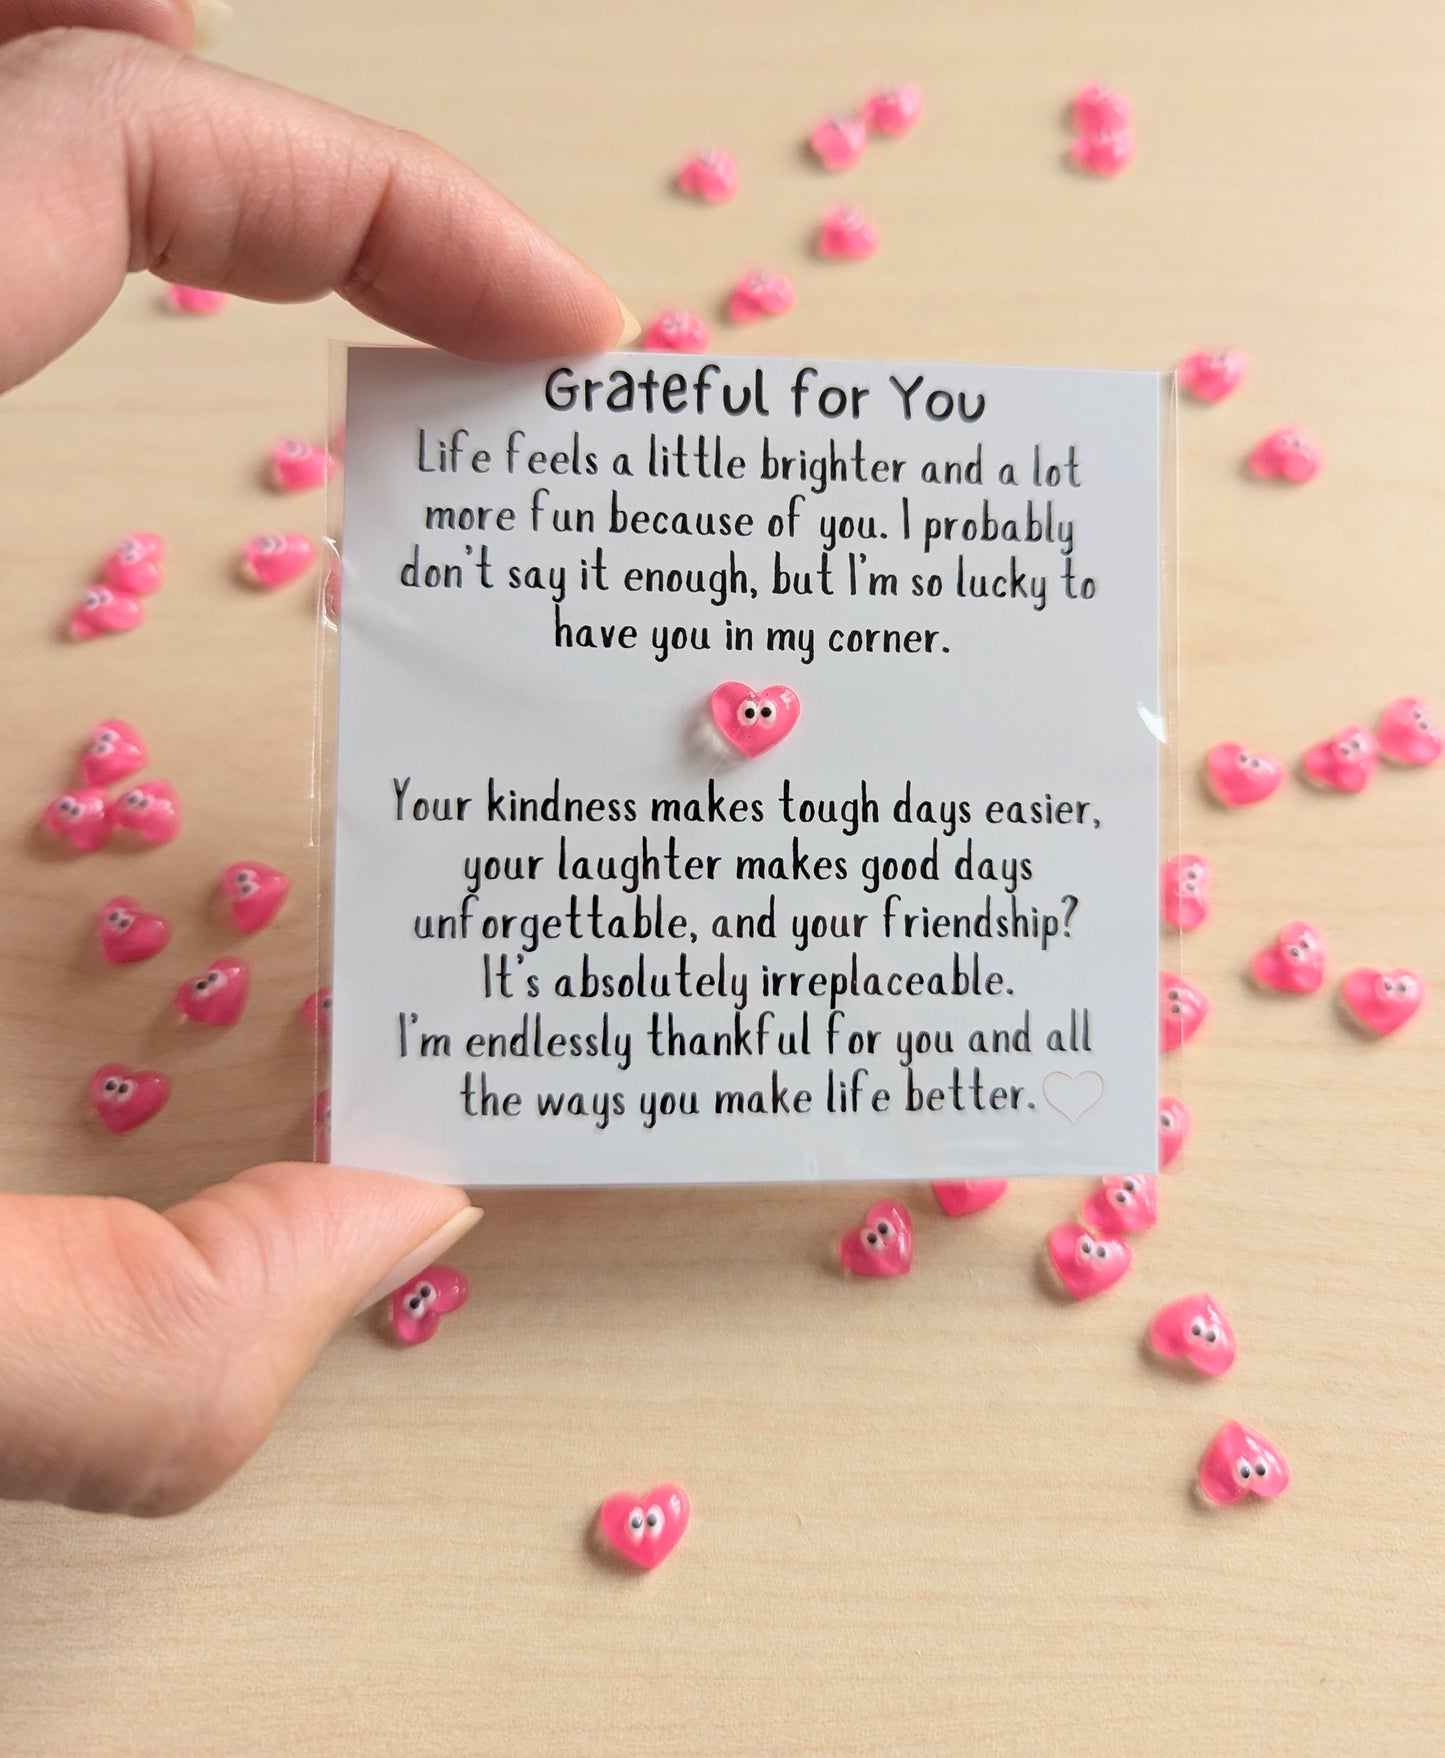 Grateful for You
Life feels a little brighter and a lot
more fun because of you. I probably
don't say it enough, but I'm so lucky to
have you in my corner.
Your kindness makes tough days easier,
your laughter makes good days
unforgettable, and your friendship?
It's absolutely irreplaceable.
I'm endlessly thankful for you and all
the ways you make life better.